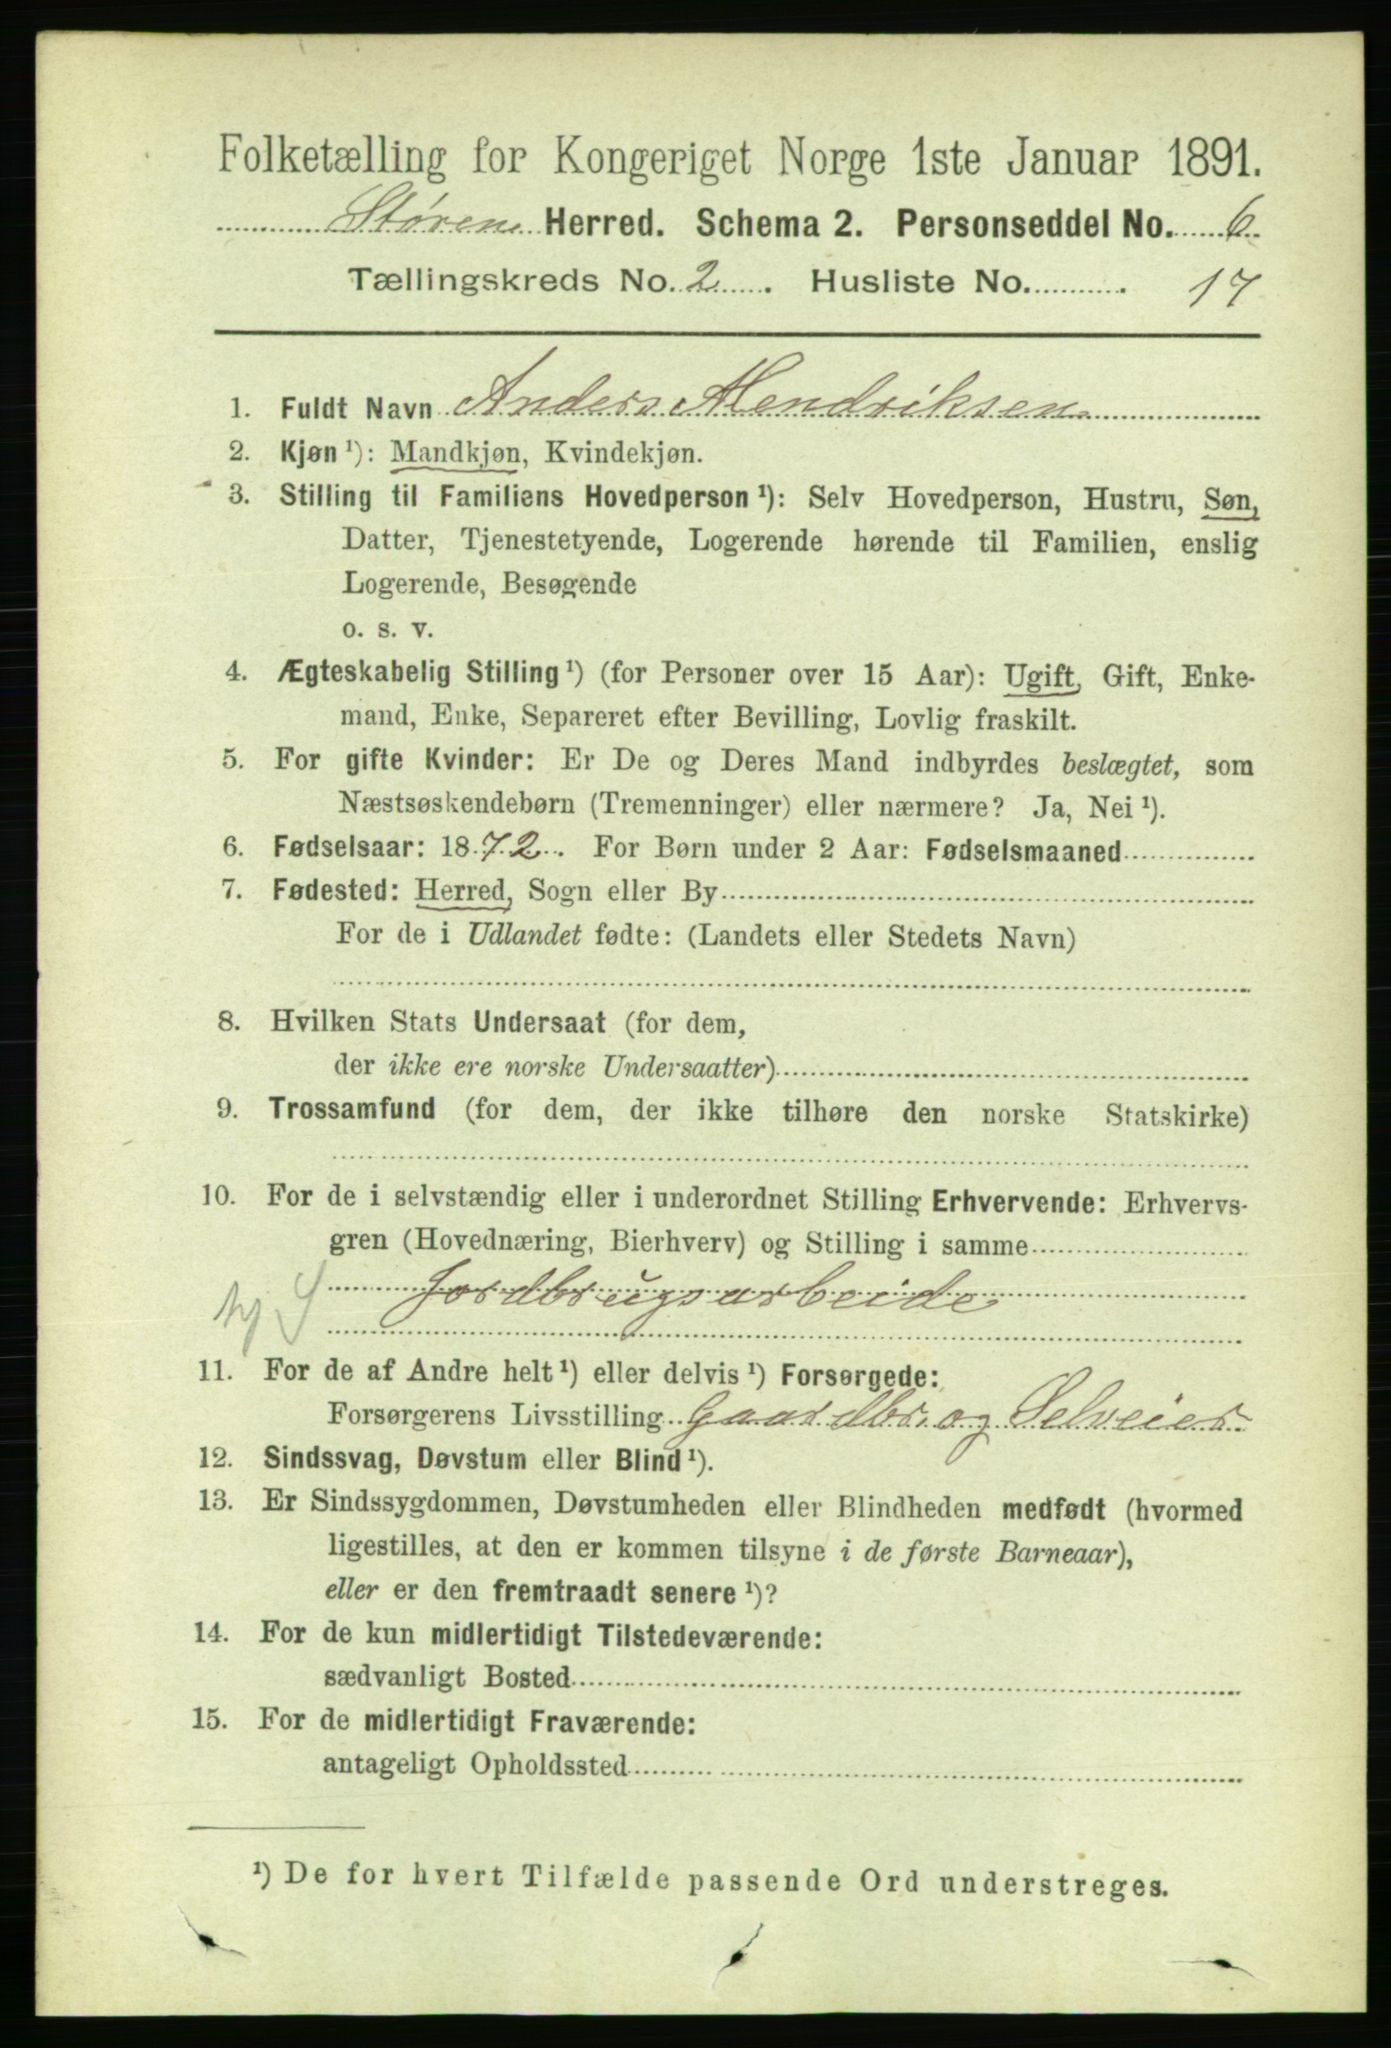 Folketælling for Kongeriget Norge 1ste Januar 1891.
Støren Herred. Schema 2. Personseddel No. 6.
Tællingskreds No. 2. Husliste No. 17
1. Fuldt Navn Anders Hendriksen
2. Kjøn ¹): Mandkjøn, Kvindekjøn.
3. Stilling til Familiens Hovedperson ¹): Selv Hovedperson, Hustru, Søn,
Datter, Tjenestetyende, Logerende hørende til Familien, enslig
Logerende, Besøgende
o. s. v.
4. Ægteskabelig Stilling ¹) (for Personer over 15 Aar): Ugift, Gift, Enke-
mand, Enke, Separeret efter Bevilling, Lovlig fraskilt.
5. For gifte Kvinder: Er De og Deres Mand indbyrdes beslægtet, som
Næstsøskendebørn (Tremenninger) eller nærmere? Ja, Nei ¹).
6. Fødselsaar: 1872. For Børn under 2 Aar: Fødselsmaaned
7. Fødested: Herred, Sogn eller By
For de i Udlandet fødte: (Landets eller Stedets Navn)
8. Hvilken Stats Undersaat (for dem,
der ikke ere norske Undersaatter)
9. Trossamfund (for dem, der ikke tilhøre den norske Statskirke)
10. For de i selvstændig eller i underordnet Stilling Erhvervende: Erhvervs-
gren (Hovednæring, Bierhverv) og Stilling i samme
Jordbrugsarbeide
11. For de af Andre helt ¹) eller delvis ¹) Forsørgede:
Forsørgerens Livsstilling Gaardbr. og Selveier
12. Sindssvag, Døvstum eller Blind ¹).
13. Er Sindssygdommen, Døvstumheden eller Blindheden medfødt (hvormed
ligestilles, at den er kommen tilsyne i de første Barneaar),
eller er den fremtraadt senere ¹)?
14. For de kun midlertidigt Tilstedeværende:
sædvanligt Bosted
15. For de midlertidigt Fraværende:
antageligt Opholdssted
¹) De for hvert Tilfælde passende Ord understreges.